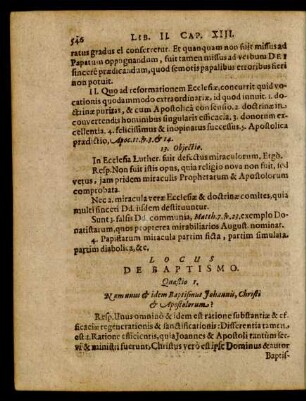 546 LIB. II. CAP. XIII.
ratus gradus ei conferretur. Et quanquam non fuit missus ad
Papatum oppugnandum, fuit tamen missus ad verbum DEI
sincerè prædicandum, quod semotis papalibus erroribus fieri
non potuit.
11. Quo ad reformationem Ecclesiæ, concurrit quid vo-
cationis quodammodo extraordinariæ, id quod innuit 1. do-
ctrinæ puritas, & cum Apostolica consensio. 2. doctrinæ in
convertendis hominibus singularis efficacia. 3. donorum ex-
cellentia. 4. felicissimus & inopinatus successus. 5. Apostolica
prædictio, Apoc. 11. & 14.
17. Objectio.
In Ecclesia Luther. fuit defectus miraculorum, Ergò.
Resp. Non fuit istis opus, quia religio nova non fuit, sed
vetus, jam pridem miraculis Prophetarum & Apostolorum
comprobata.
Nec 2. miracula veræ Ecclesiæ & doctrinæ comites, quia
multi sinceri Dd. iisdem destituuntur.
Sunt 3. falsis Dd. communia, Matth. 7. & 23. exemplo Do-
natistarum, quos propterea mirabiliarios August. nominat.
4. Papistarum miracula partim ficta, partim simulata,
partim diabolica, &c.
LOCUS
DE BAPTISMO.
Quæstio 1.
Num unus & idem Baptismus Johannis, Christi
& Apostolorum?
Resp. Unus omninò & idem est ratione substantiæ & ef-
ficaciæ regenerationis & sanctificationis: Differentia tamen
est 1. Ratione efficientis, quia Joannes & Apostoli tantùm ser-
vi & ministri fuerunt, Christus verò est ipse Dominus & autor
Baptis-